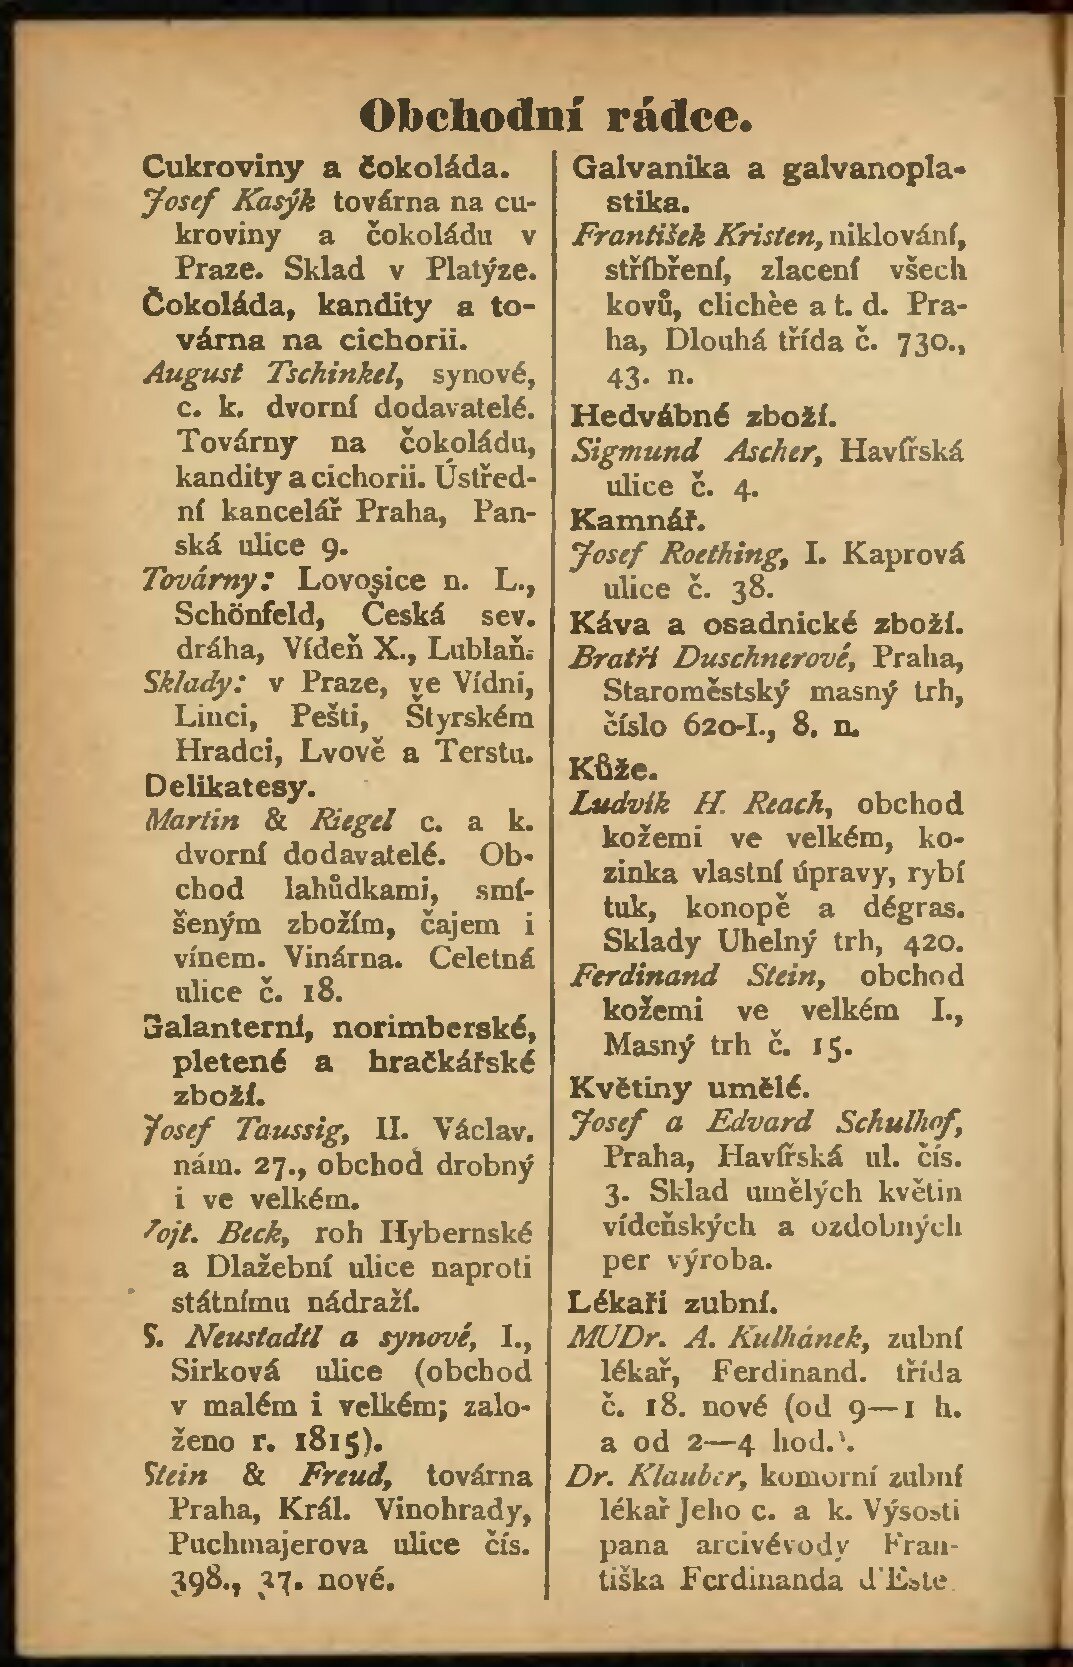 Obchodní rádce.
Cukroviny a čokoláda.
Josef Kasýk továrna na cu-
kroviny a čokoládu v
Praze. Sklad v Platýze.
Čokoláda, kandity a to-
várna na cichorii.
August Tschinkel, synové,
c. k. dvorní dodavatelé.
Továrny na čokoládu,
kandity a cichorii. Ústřed-
ní kancelář Praha, Pan-
ská ulice 9.
Továrny: Lovosice n. L.,
Schönfeld, Česká sev.
dráha, Vídeň X., Lublaň.
Sklady: v Praze, ve Vídni,
Linci, Pešti, Štyrském
Hradci, Lvově a Terstu.
Delikatesy.
Martin & Riegel c. a k.
dvorní dodavatelé. Ob-
chod lahůdkami, smí-
šeným zbožím, čajem i
vínem. Vinárna. Celetná
ulice č. 18.
Galanterní, norimberské,
pletené a hračkářské
zboží.
Josef Taussig, II. Václav.
nám. 27., obchod drobný
i ve velkém.
Vojt. Beck, roh Hybernské
a Dlažební ulice naproti
státnímu nádraží.
S. Neustadtl a synové, I.,
Sirková ulice (obchod
v malém i velkém; zalo-
ženo r. 1815).
Stein & Freud, továrna
Praha, Král. Vinohrady,
Puchmajerova ulice čís.
398., 27. nové.
Galvanika a galvanopla-
stika.
František Kristen, niklování,
stříbření, zlacení všech
kovů, clichèe a t. d. Pra-
ha, Dlouhá třída č. 730.,
43. n.
Hedvábné zboží.
Sigmund Ascher, Havířská
ulice č. 4.
Kamnář.
Josef Roething, I. Kaprová
ulice č. 38.
Káva a osadnické zboží.
Bratří Duschnerové, Praha,
Staroměstský masný trh,
číslo 620-I., 8. n.
Kůže.
Ludvík H. Reach, obchod
kožemi ve velkém, ko-
zinka vlastní úpravy, rybí
tuk, konopě a dégras.
Sklady Uhelný trh, 420.
Ferdinand Stein, obchod
kožemi ve velkém I.,
Masný trh č. 15.
Květiny umělé.
Josef a Edvard Schulhof,
Praha, Havířská ul. čís.
3. Sklad umělých květin
vídeňských a ozdobných
per výroba.
Lékaři zubní.
MUDr. A. Kulhánek, zubní
lékař, Ferdinand. třída
č. 18. nové (od 9—1 h.
a od 2—4 hod.).
Dr. Klauber, komorní zubní
lékař Jeho c. a k. Výsosti
pana arcivévody Fran-
tiška Ferdinanda d'Este